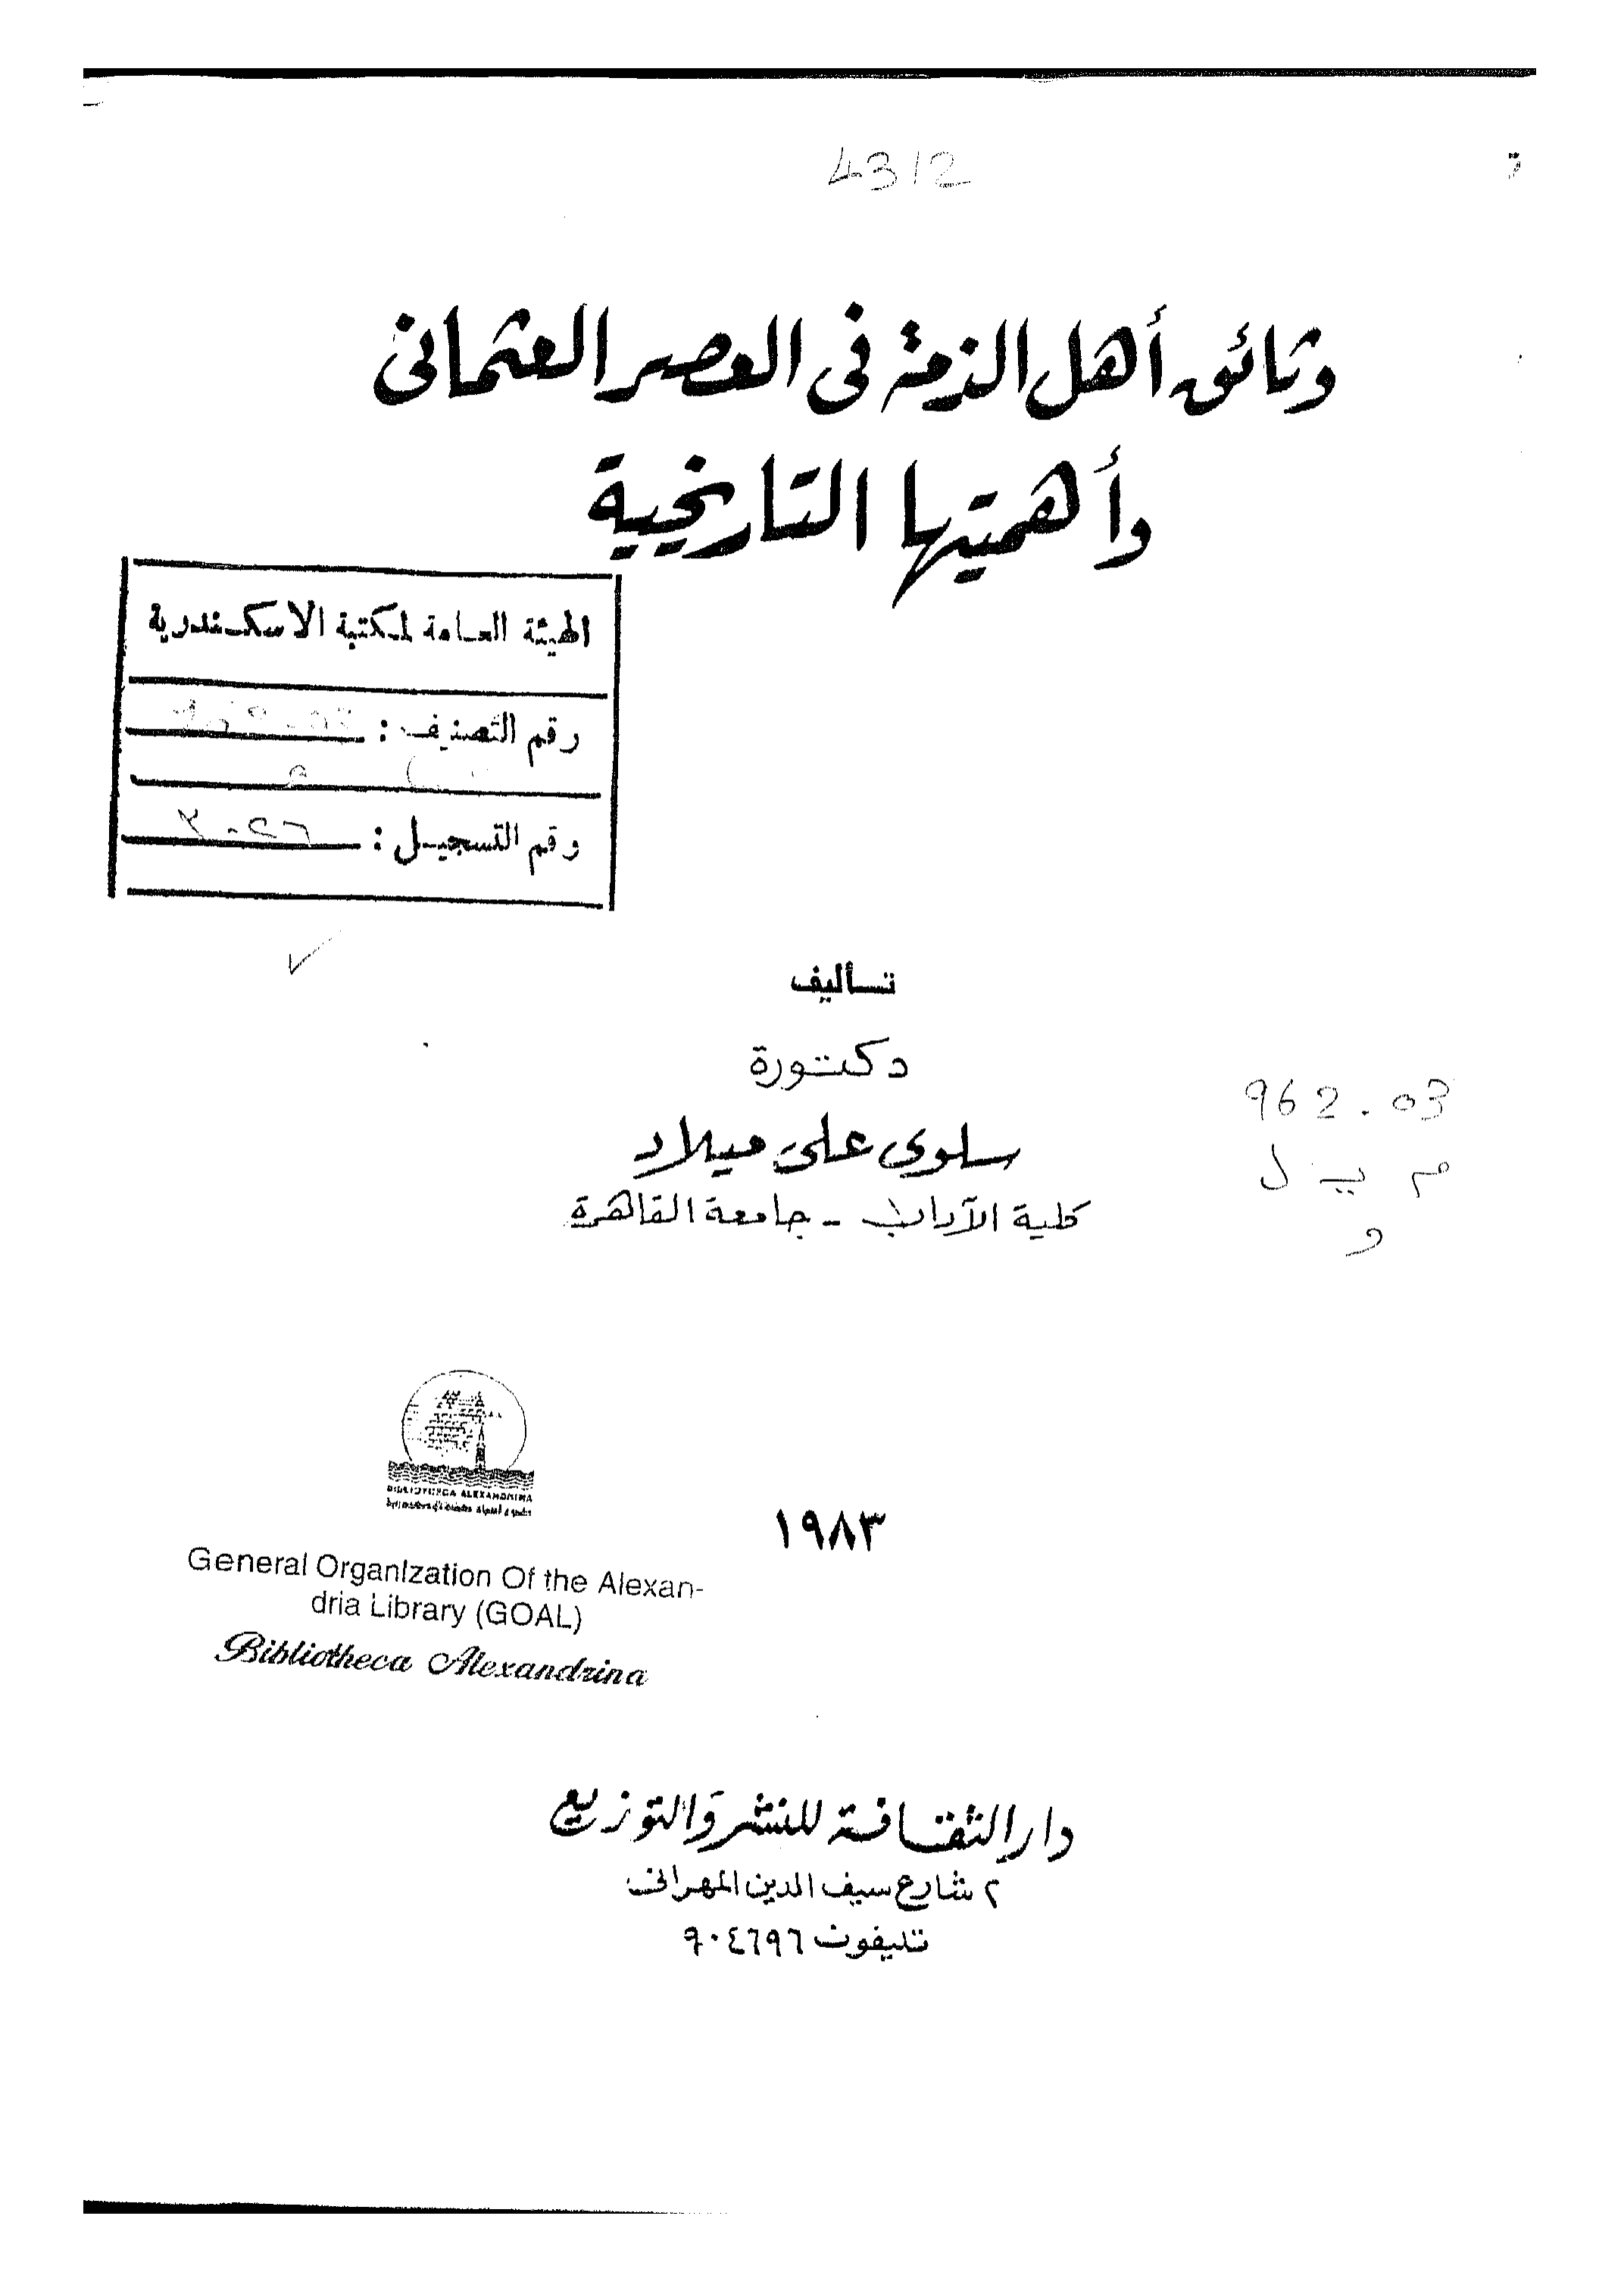 4312
وثائق أهل الذمة فى العصر العثمانى
وأهميتها التاريخية
الهيئة العامة لمكتبة الاسكندرية
رقم التصنيف :
رقم التسجيل :
تأليف
دكتورة
سلوى على ميلاد
كلية الآداب - جامعة القاهرة
962.03
م ي ل
و
BIBLIOTHECA ALEXANDRINA
١٩٨٣
General Organization Of the Alexan-
dria Library (GOAL)
Bibliotheca Alexandrina
دار الثقافة للنشر والتوزيع
٢ شارع سيف الدين المهرانى
تليفون ٩٠٤٦٩٦